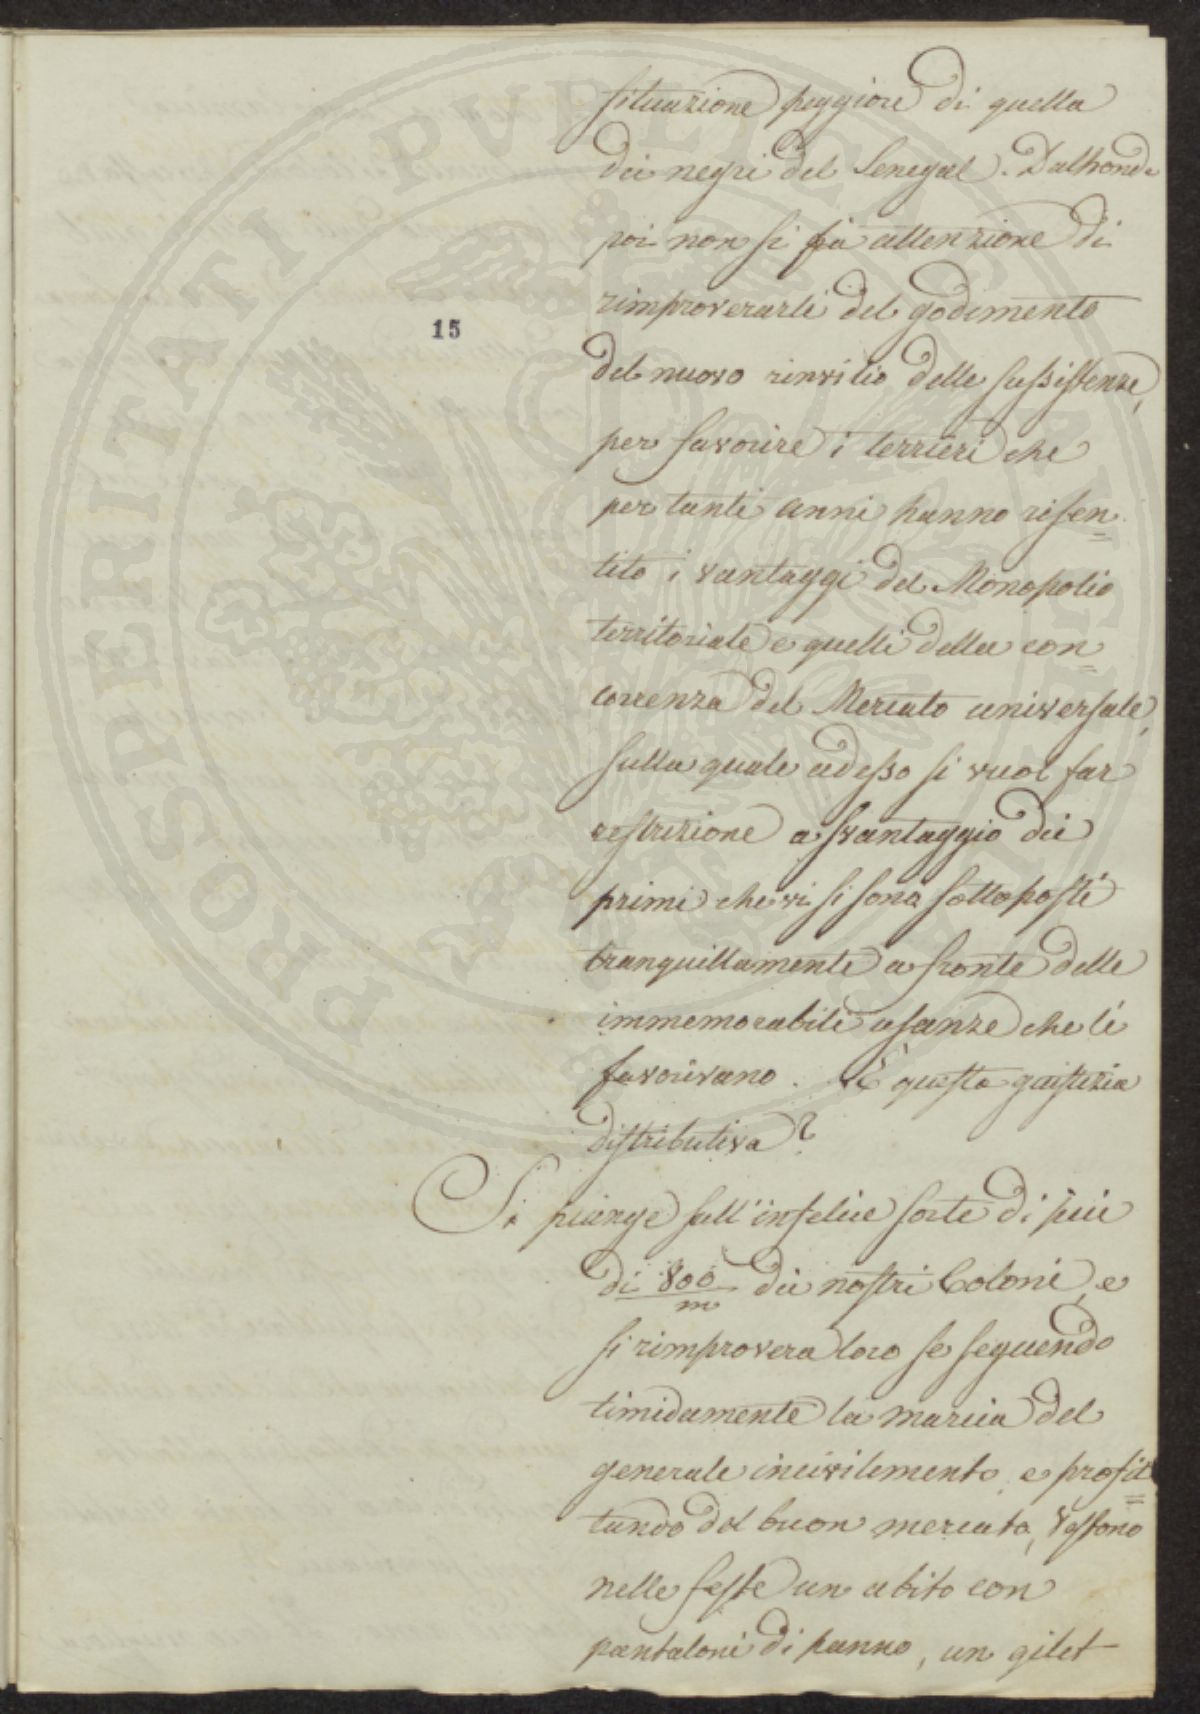 situazione peggiore di quella
dei negri del Senegal. Dalhonde
poi non si fa attenzione di
rimproverarli del godimento
del nuovo rinvilio delle sussistenze,
per favorire i terrieri che
per tanti anni hanno risen=
tito i vantaggi del Monopolio
territoriale e quelli della con=
correnza del Mercato universale,
sulla quale adesso si vuol far
restrizione a svantaggio dei
primi che vi si sono sottoposti
tranquillamente a fronte delle
immemorabili usanze che li
favorivano. È questa giustizia
distributiva?
Si piange sull'infelice sorte di più
di 800/m dei nostri Coloni, e
si rimprovera loro se seguendo
timidamente la marcia del
generale incivilimento, e profit=
tando del buon mercato, vestono
nelle feste un abito con
pantaloni di panno, un gilet
15
PROSPERITATI PVBLICAE AVGENDAE